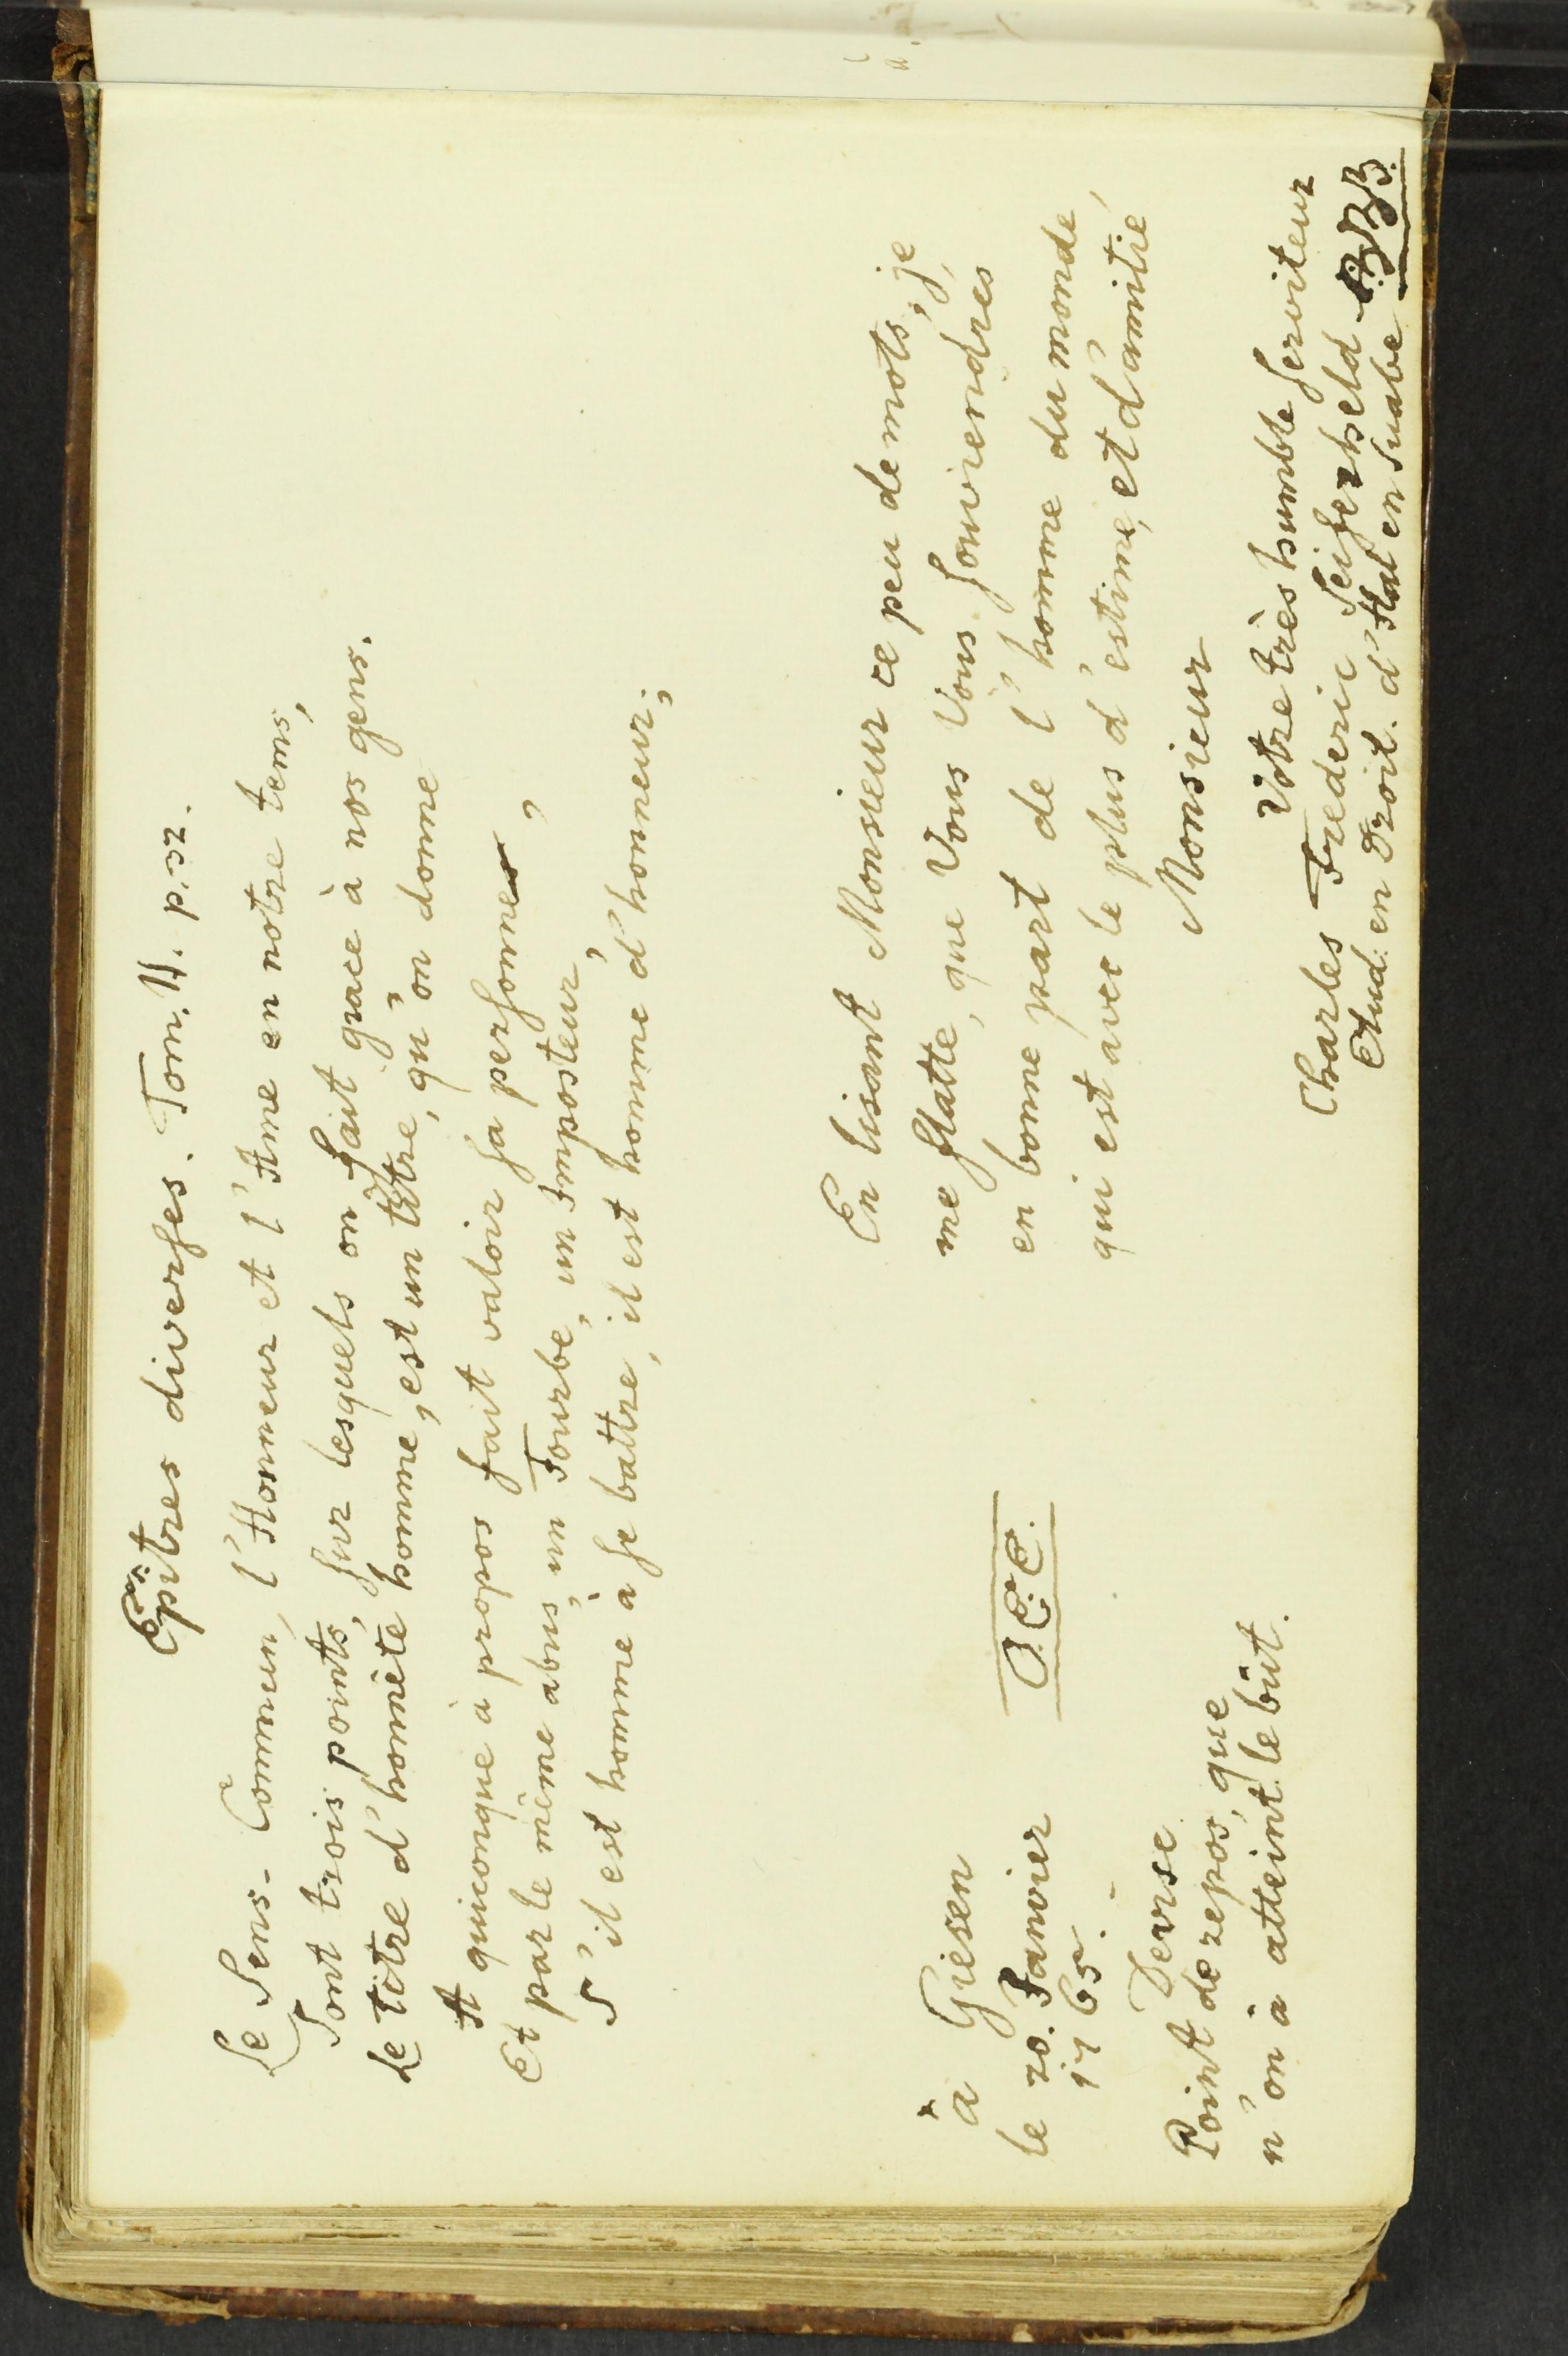 Epitres diverses. Tom. II. p. 32.
Le Sens-Commun, l'Honneur et l'Ame en notre tems,
Sont trois points, sur lesquels on fait grace à nos gens.
Le titre d'honnète homme, est un titre, qu'on donne
A quiconque à propos fait valoir sa personne,
Et par le mème abus, un Fourbe, un Imposteur,
S'il est homme à se battre, il est homme d'honneur;
En lisant Monsieur ce peu de mots, je
me flatte, que Vous Vous souviendres
en bonne part de l'homme du monde,
qui est avec le plus d'estime, et d'amitié
Monsieur
Vôtre très humble serviteur
Charles Frederic Seiferheld
Etud: en Droit. d'Hal en Suabe
à Giesen
le 20. Janvier
1765.
Devise
Point de repos, que
n'on à atteint le bût.